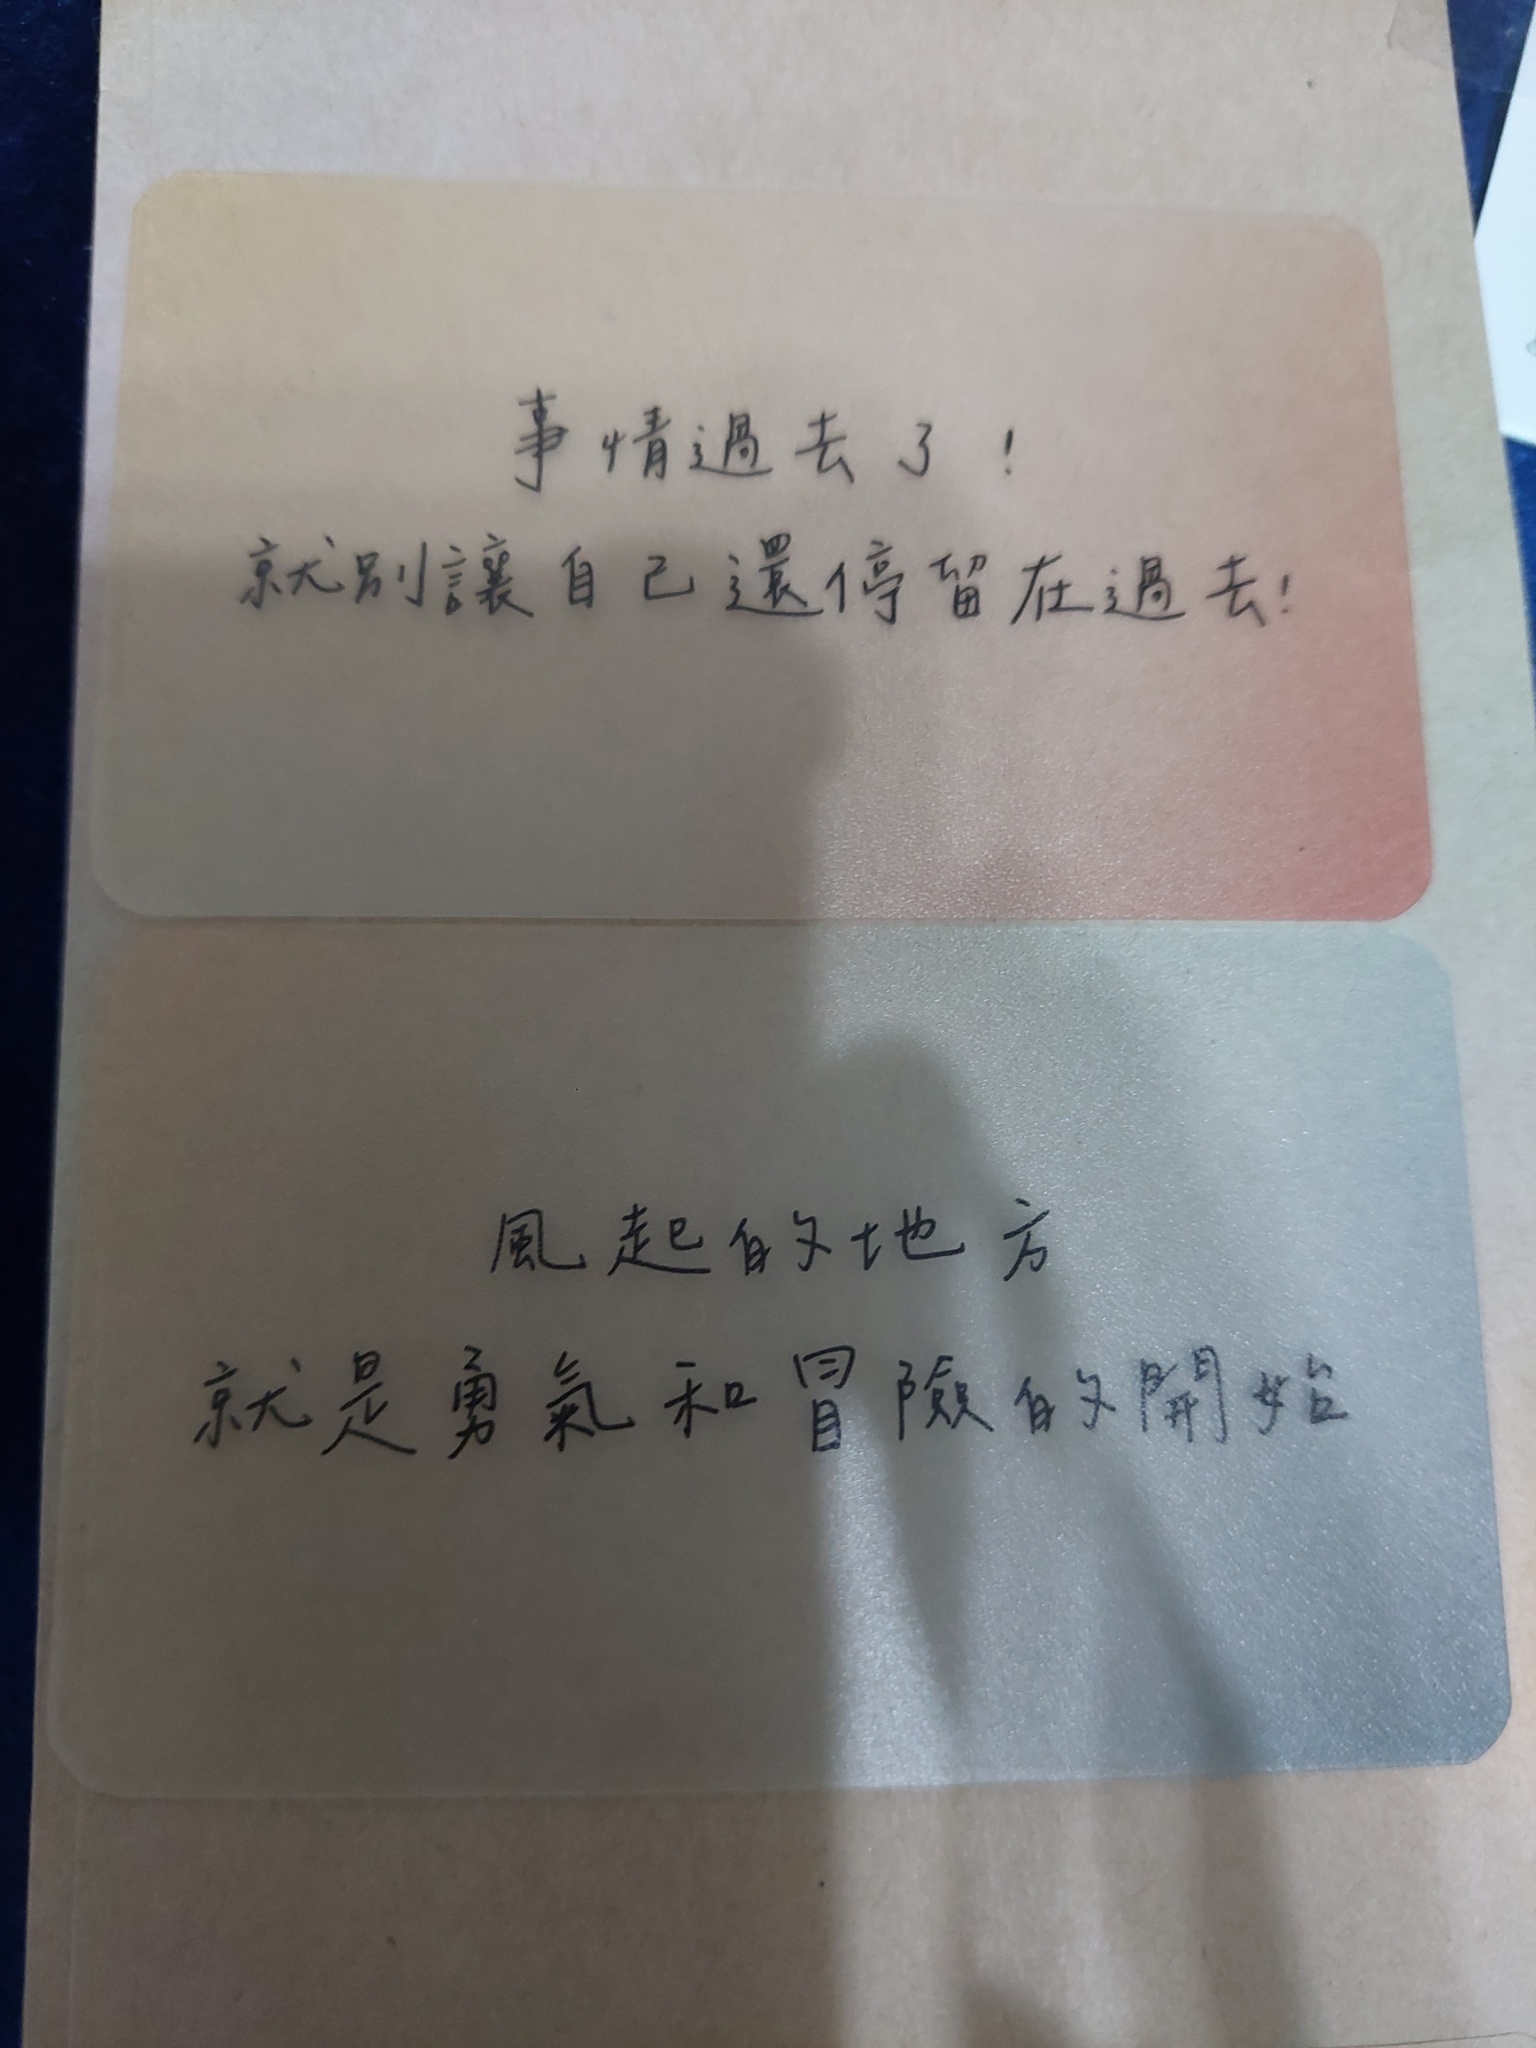 事情過去了!
就別讓自己還停留在過去!
風起的地方
就是勇氣和冒險的開始